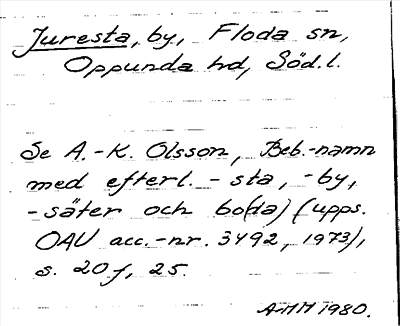 Juresta, by, Floda sn,
Oppunda hd, Söd.l.
Se A.-K. Olsson, Beb.-namn
med efterl. - sta, -by,
-säter och bo(da) (upps.
OAU acc.-nr. 3492, 1973),
s. 20 f, 25.
AMM 1980.